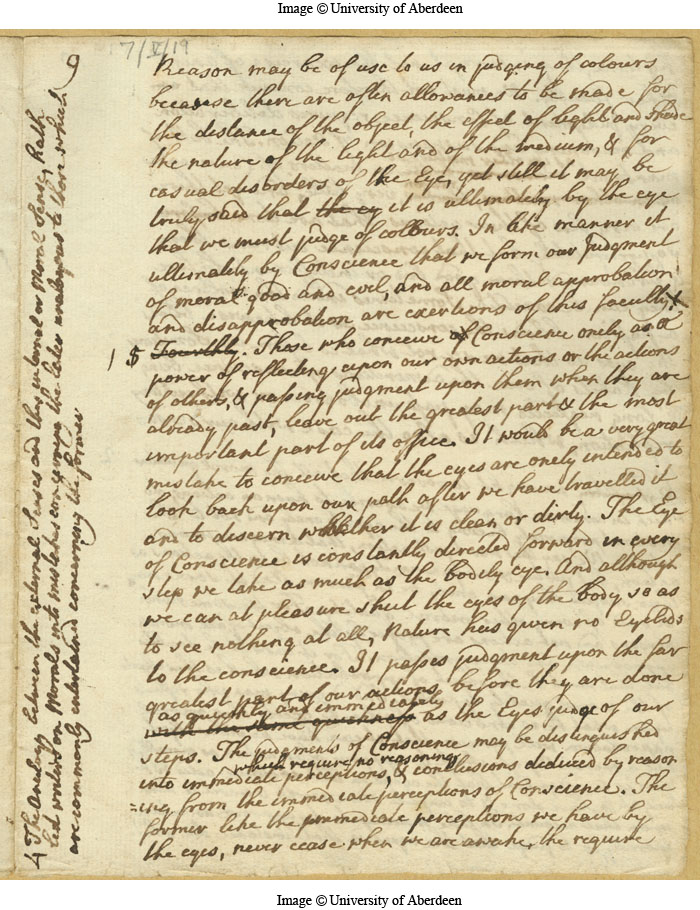 Image © University of Aberdeen
7/V/19
9
Reason may be of use to us in judging of colours
because there are often allowances to be made for
the distance of the object, the effect of light and shade
the nature of the light and of the medium, & for
casual disorders of the Eye, yet still it may be
truly said that the ey it is ultimately by the eye
that we must judge of colours. In like manner it
ultimately by Conscience that we form our Judgment
of moral good and evil, and all moral approbation
and disapprobation are exertions of this faculty. X
1 5 Fourthly. Those who conceive of Conscience onely as a
power of reflecting upon our own actions or the actions
of others, & passing judgment upon them when they are
already past, leave out the greatest part & the most
important part of its office. It would be a very great
mistake to conceive that the eyes are onely intended to
look back upon our path after we have travelled it
and to discern whether it is clean or dirty. The Eye
of Conscience is constantly directed forward in every
step we take as much as the bodily eye. And although
we can at pleasure shut the eyes of the body so as
to see nothing at all, Nature has given no Eyelids
to the conscience. It passes judgment upon the far
greatest part of our actions before they are done
as quickly and immediately
with the same quickness as the Eyes judge of our
steps. The judgments of Conscience may be distinguished
which require no reasoning
into immediate perceptions, & conclusions deduced by reason
=ing from the immediate perceptions of Conscience. The
former like the immediate perceptions we have by
the eyes, never cease when we are awake, the require
4 The Analogy between the external Senses and this internal or Moral Sense, hath
led writers on Morals into mistakes concerning the later analogous to those which
are commonly entertained concerning the former
Image © University of Aberdeen